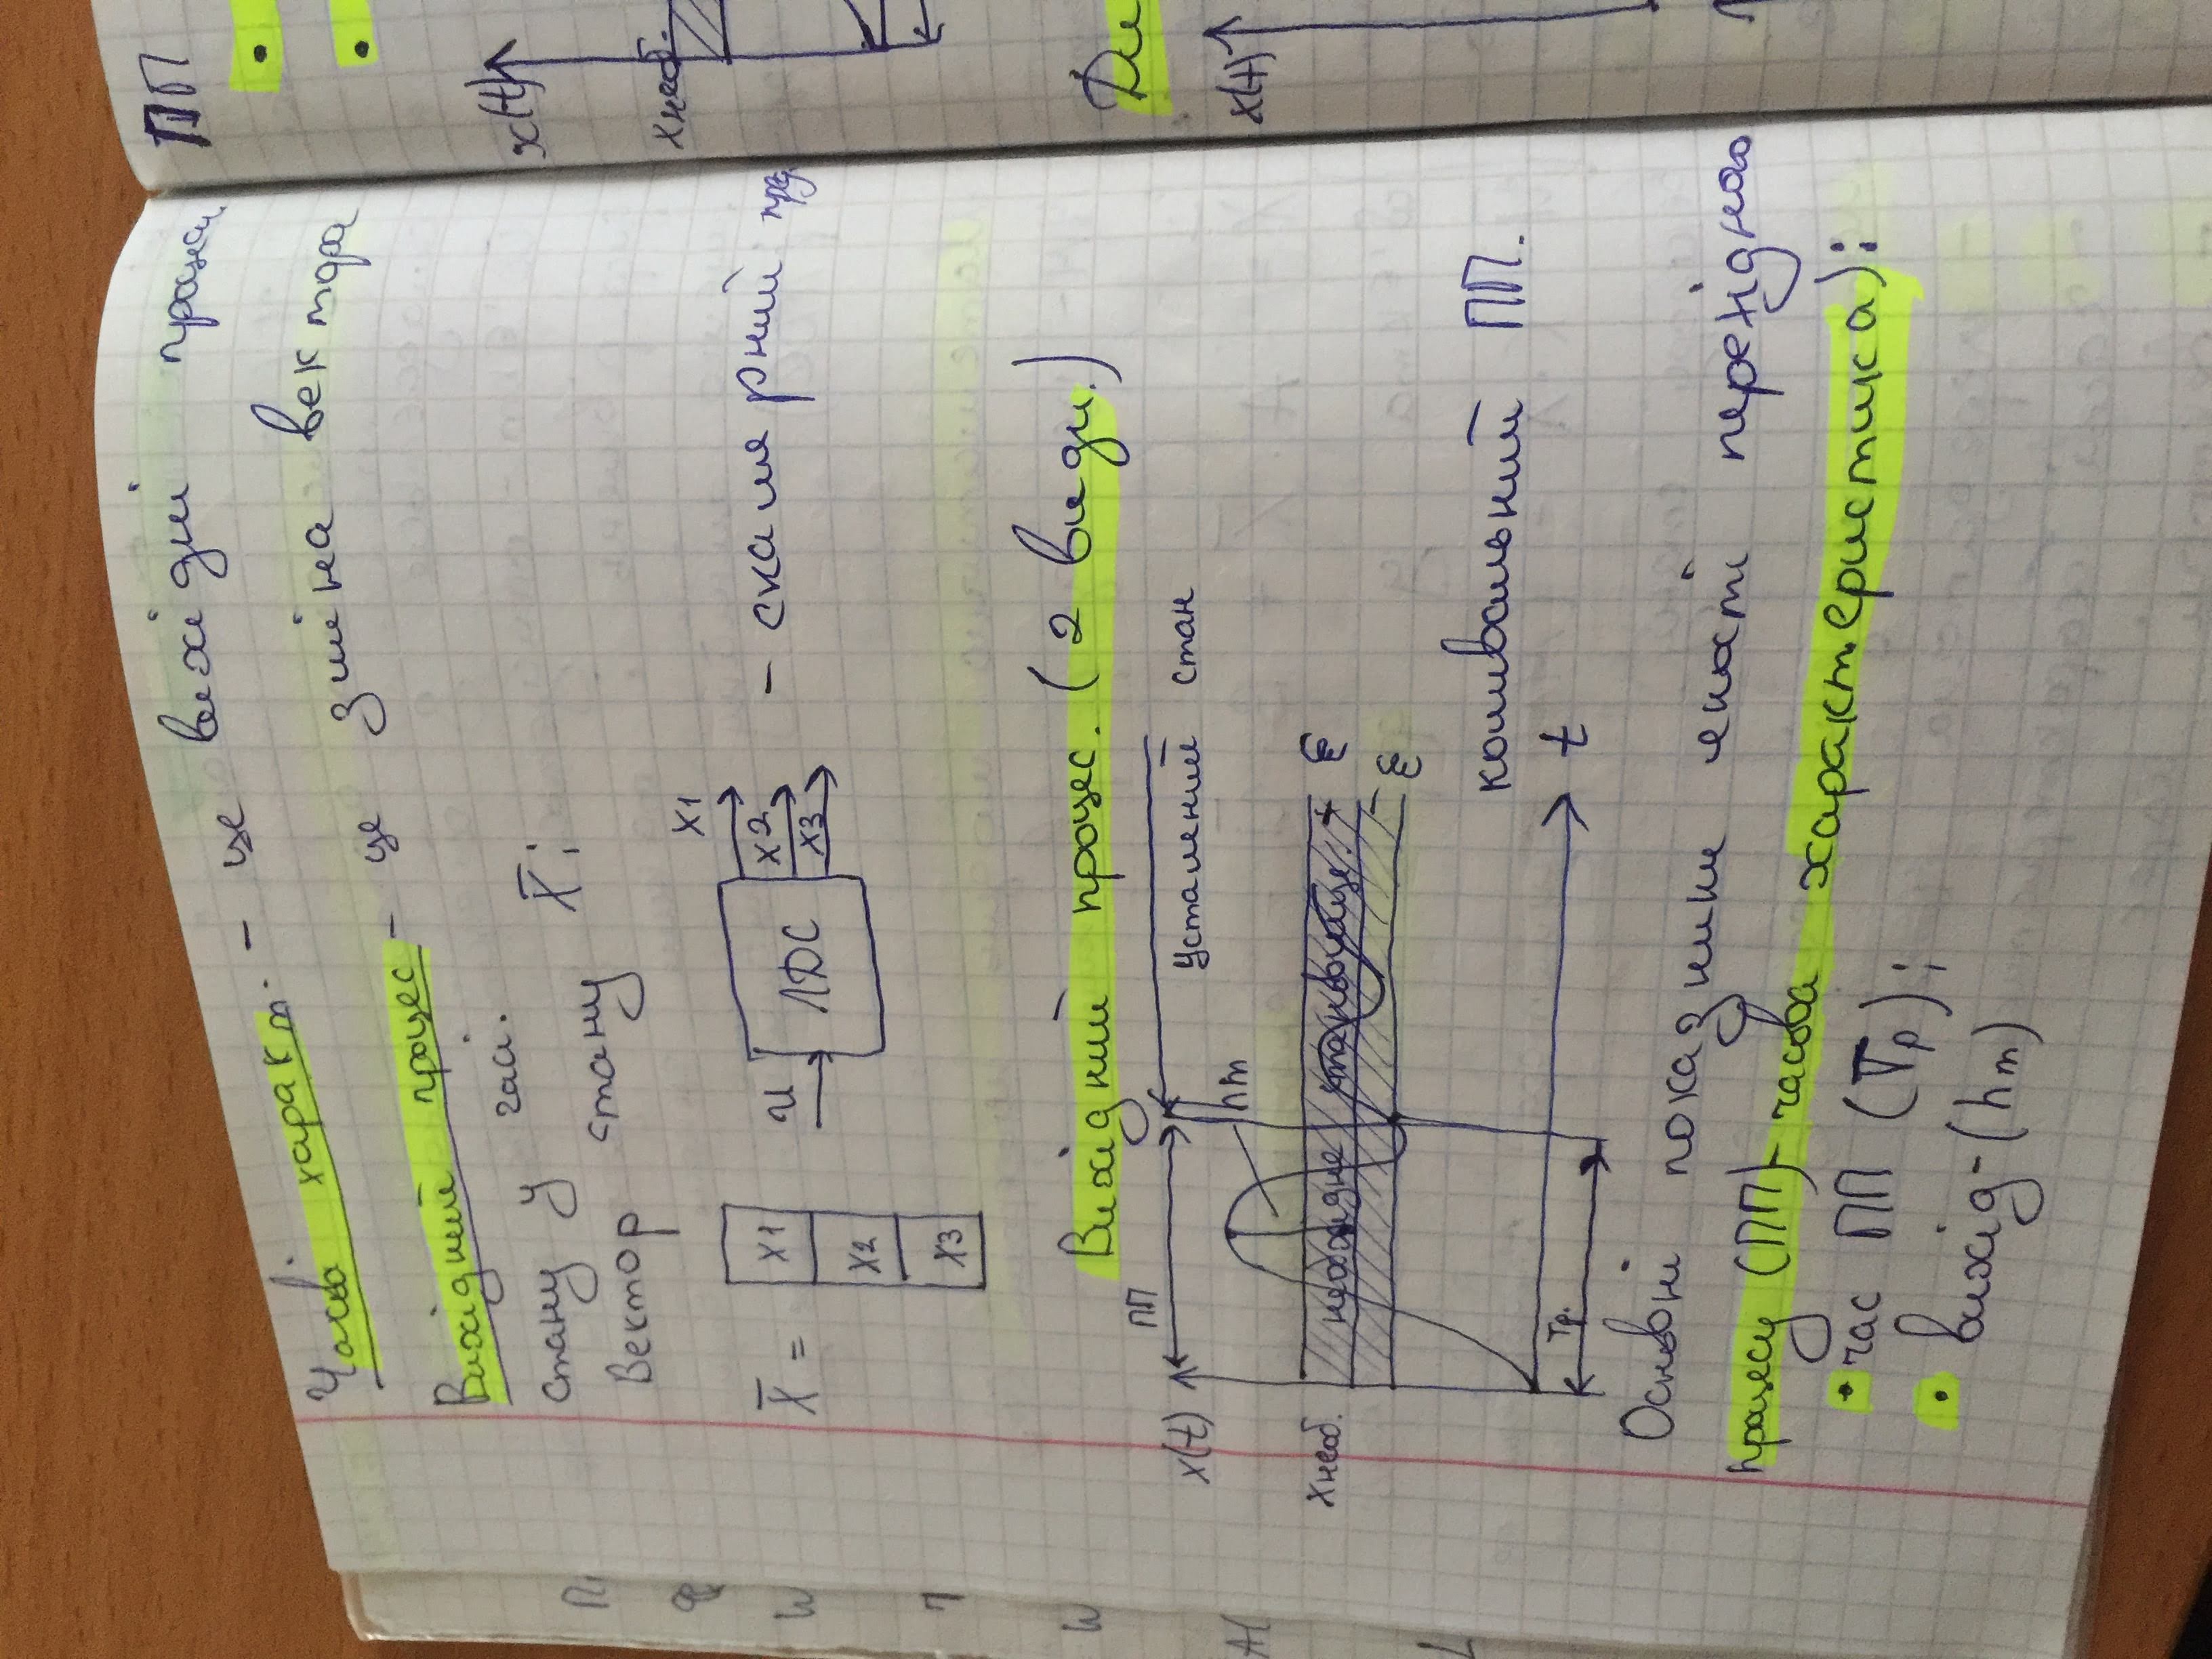 Часові характ. - це вихідні процеси.
Вихідний процес - це зміна вектора
стану у часі.
Вектор стану X̅;
X̅ =
X1
X2
X3
U
ЛДС
X1
X2
X3
- скалярний
Вихідний процес. (2 види.)
ПП
усталений стан
x(t)
hm
Xнеоб.
необхідне становище.
+ ξ
- ξ
коливальний ПП.
t
Тр.
Основні показники якості перехідного
процесу (ПП)- часова характеристика):
• час ПП (Тр);
• вихід-(hm)
ПП
•
•
x(t)
Xнеоб.
x(t)